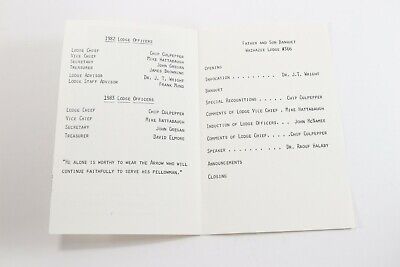 1982 Lodge Officers
Lodge Chief Chip Culpepper
Vice Chief Mike Hattabaugh
Secretary John Gregan
Treasurer James Browning
Lodge Advisor Dr. J. T. Wright
Lodge Staff Advisor Frank Ming
1983 Lodge Officers
Lodge Chief Chip Culpepper
Vice Chief Mike Hattabaugh
Secretary John Gregan
Treasurer David Elmore
"He alone is worthy to wear the Arrow who will
continue faithfully to serve his fellowman."
Father and Son Banquet
Wazhazee Lodge #366
Opening
Invocation . . . . . . . . . Dr. J.T. Wright
Banquet
Special Recognitions . . . . . Chip Culpepper
Comments of Lodge Vice Chief . Mike Hattabaugh
Induction of Lodge Officers. . . John McSamee
Comments of Lodge Chief. . . . .Chip Culpepper
Speaker . . . . . . . . . . Dr. Raouf Halaby
Announcements
Closing